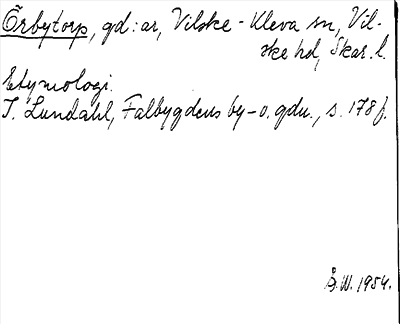 Örbytorp, gd:ar, Vilske-Kleva sn, Vil-
ske hd, Skar. l.
Etymologi.
I. Lundahl, Falbygdens by- o. gdn., s. 178 f.
Å.W. 1954.